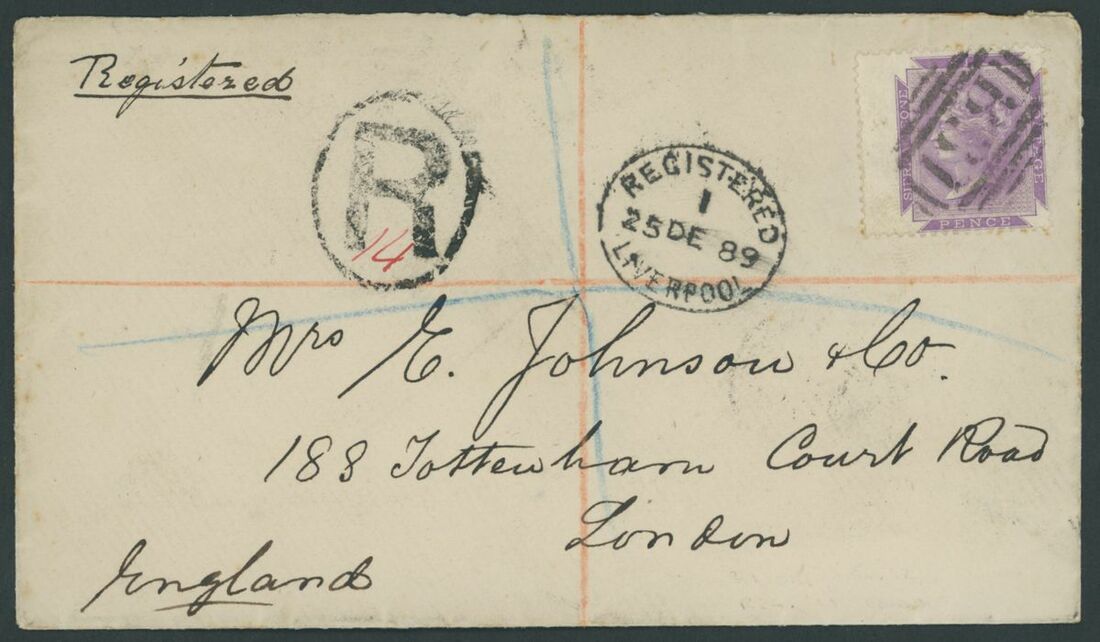 Registered
R
14
REGISTERED
1
25 DE 89
LIVERPOOL
PENCE
Mrs E. Johnson & Co.
188 Tottenham Court Road
London
England